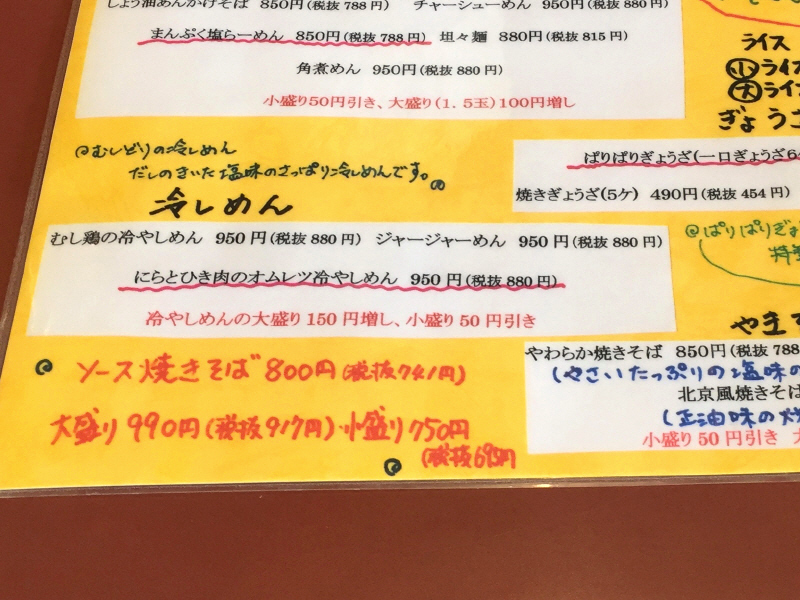 しょう油あんかけそば 850円(税抜 788円) チャーシューめん 950円(税抜 880円)
まんぷく塩らーめん 850円(税抜 788円) 坦々麺 880円(税抜 815円)
角煮めん 950円(税抜 880円)
小盛り50円引き、大盛り(1.5玉)100円増し
むしどりの冷しめん
だしのきいた塩味のさっぱり冷しめんです。
冷しめん
むし鶏の冷やしめん 950円(税抜 880円) ジャージャーめん 950円(税抜 880円)
にらとひき肉のオムレツ冷やしめん 950円(税抜 880円)
冷やしめんの大盛り150円増し、小盛り50円引き
ソース焼きそば 800円(税抜741円)
大盛り990円(税抜917円)・小盛り750円
(税抜695円
ライス
小ライ
大ライ
ぎょうさ
ぱりぱりぎょうざ(一口ぎょうざ6
焼きぎょうざ(5ケ) 490円(税抜 454円)
ぱりぱりぎ
特
やき
やわらか焼きそば 850円(税抜 788
(やさいたっぷりの塩味の
北京風焼きそば
(正油味の
小盛り50円引き 大